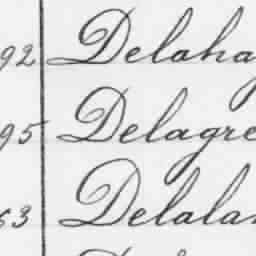 92 Delaha
95 Delagre
63 Delalan